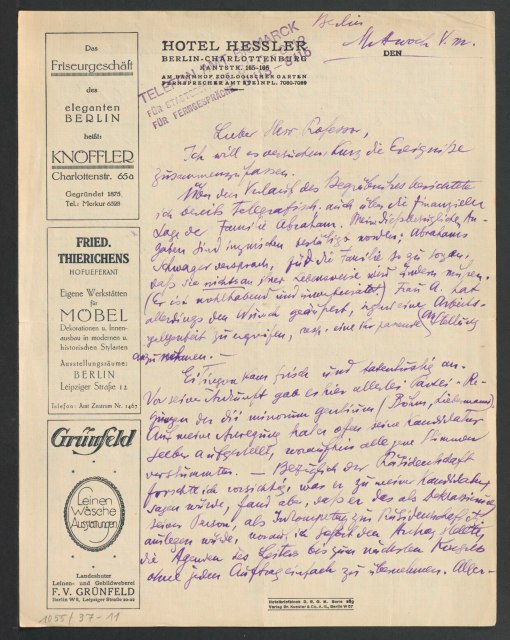 Das
Friseurgeschäft
des
eleganten
BERLIN
heißt:
KNÖFFLER
Charlottenstr. 65a
Gegründet 1875
Tel.: Merkur 6598
FRIED.
THIERICHENS
HOFLIEFERANT
Eigene Werkstätten
für
MÖBEL
Dekorationen u. Innen-
ausbau in modernen u.
historischen Stylarten
Ausstellungsräume:
BERLIN
Leipziger Straße 12
Telefon: Amt Zentrum Nr. 1467
Grünfeld
Leinen
Wäsche
Ausstattungen
Landeshuter
Leinen- und Gebildweberei
F. V. GRÜNFELD
Berlin W8, Leipziger Straße 20-22
1055/37-11
HOTEL HESSLER
BERLIN-CHARLOTTENBURG
KANTSTR. 165-166
AM BAHNHOF ZOOLOGISCHER GARTEN
FERNSPRECHER AMT STEINPL. 7080-7089
FÜR FERNGESPRÄCHE
Berlin
Mittwoch V.m.
DEN
Lieber Herr Professor,
Ich will es versuchen, kurz die Ereignisse
zusammenzufassen.
Über den Verlauf des Begräbnisses berichtete
ich bereits telegrafisch, auch über die finanzielle
Lage der Familie Abraham. Meine diesbezüglichen An-
gaben sind inzwischen bestätigt worden; Abrahams
Schwager versprach, für die Familie so zu sorgen,
daß sie nichts an ihrer Lebensweise wird ändern müssen.
(Er ist wohlhabend und Frau A. hat
allerdings den Wunsch geäußert, irgend eine Arbeits-
gelegenheit zu ergreifen, resp. eine ihr passende Stellung
anzunehmen. —
Eitingon kam frisch und tatenlustig an.
Vor seine Ankunft gab es hier allerlei
der dii minorum gentium (Böhm, Liebermann)
Auf meine Anregung hat er offen seine Kandidatur
selber aufgestellt, woraufhin alle jene Stimmen
verstummten. — Bezüglich der Präsidentschaft
forschte ich vorsichtig, was er zu meiner Kandidatur
sagen würde, fand aber, daß er das als
seiner Person, als Inkompetenz zur Präsidentschaft
auslegen würde, worauf ich sofort den Antrag stellte,
die Agenden des Leiters bis zum nächsten Kongreß
ohne jeden Auftrag einfach zu übernehmen. Aller-
Hotelbriefblock D. R. G. M. Serie 389